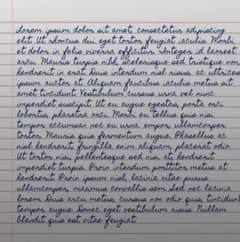 Lorem ipsum dolor sit amet consectetur adipiscing
elit. Ut rhoncus dui eget tortor feugiat iaculis. Morbi
et dolor in felis viverra efficitur. Integer id laoreet
arcu. Mauris turpis nibh, scelerisque sed tristique non,
hendrerit in erat. Duis interdum nisl risus, ac ultrices
ipsum auctor at. Aliquam faucibus iaculis metus sit
amet tincidunt. Vestibulum cursus urna vel nunc
imperdiet suscipit. Ut eu augue egestas, porta orci
lobortis, pharetra orci. Morbi eu tellus quis nisi
tempor accumsan nec eu uma. Tempor ullamcorper
tortor. Mauris quis fermentum augue. Phasellus ac
nisl hendrerit, fringilla enim aliquam, placerat odio.
Ut tortor nisi, pellentesque sed nisi at, hendrerit
imperdiet turpis. Proin interdum porttitor metus at
hendrerit. Proin ipsum nisl, lacinia vitae purus
ullamcorper, maximus convallis sem. Sed nec lacinia
lorem. Duis arcu metus, cursus non odio quis, tincidunt
tempor augue. Donec eget vestibulum risus. Nullam
blandit quis est vitae feugiat.